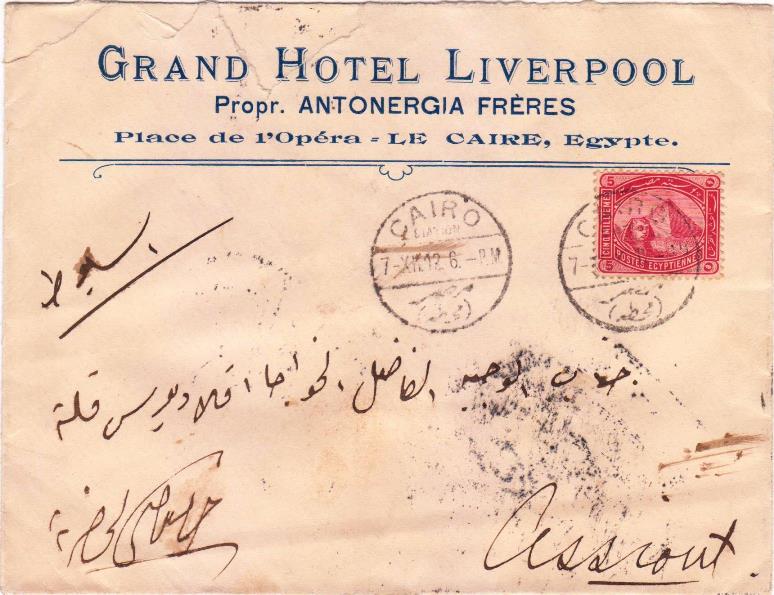 GRAND HOTEL LIVERPOOL
Propr. ANTONERGIA FRÈRES
Place de l'Opéra - LE CAIRE, Egypte.
CAIRO
STATION
7-XII.12 6.-P.M
مصر
(محطة)
5 5
CINQ MILLIEMES
POSTES EGYPTIENNES
5
CA
7-
مصر
(محطة)
اسيوط
جناب الوجيه الفاضل الخواجا اقلاديوس قلته
Assiout